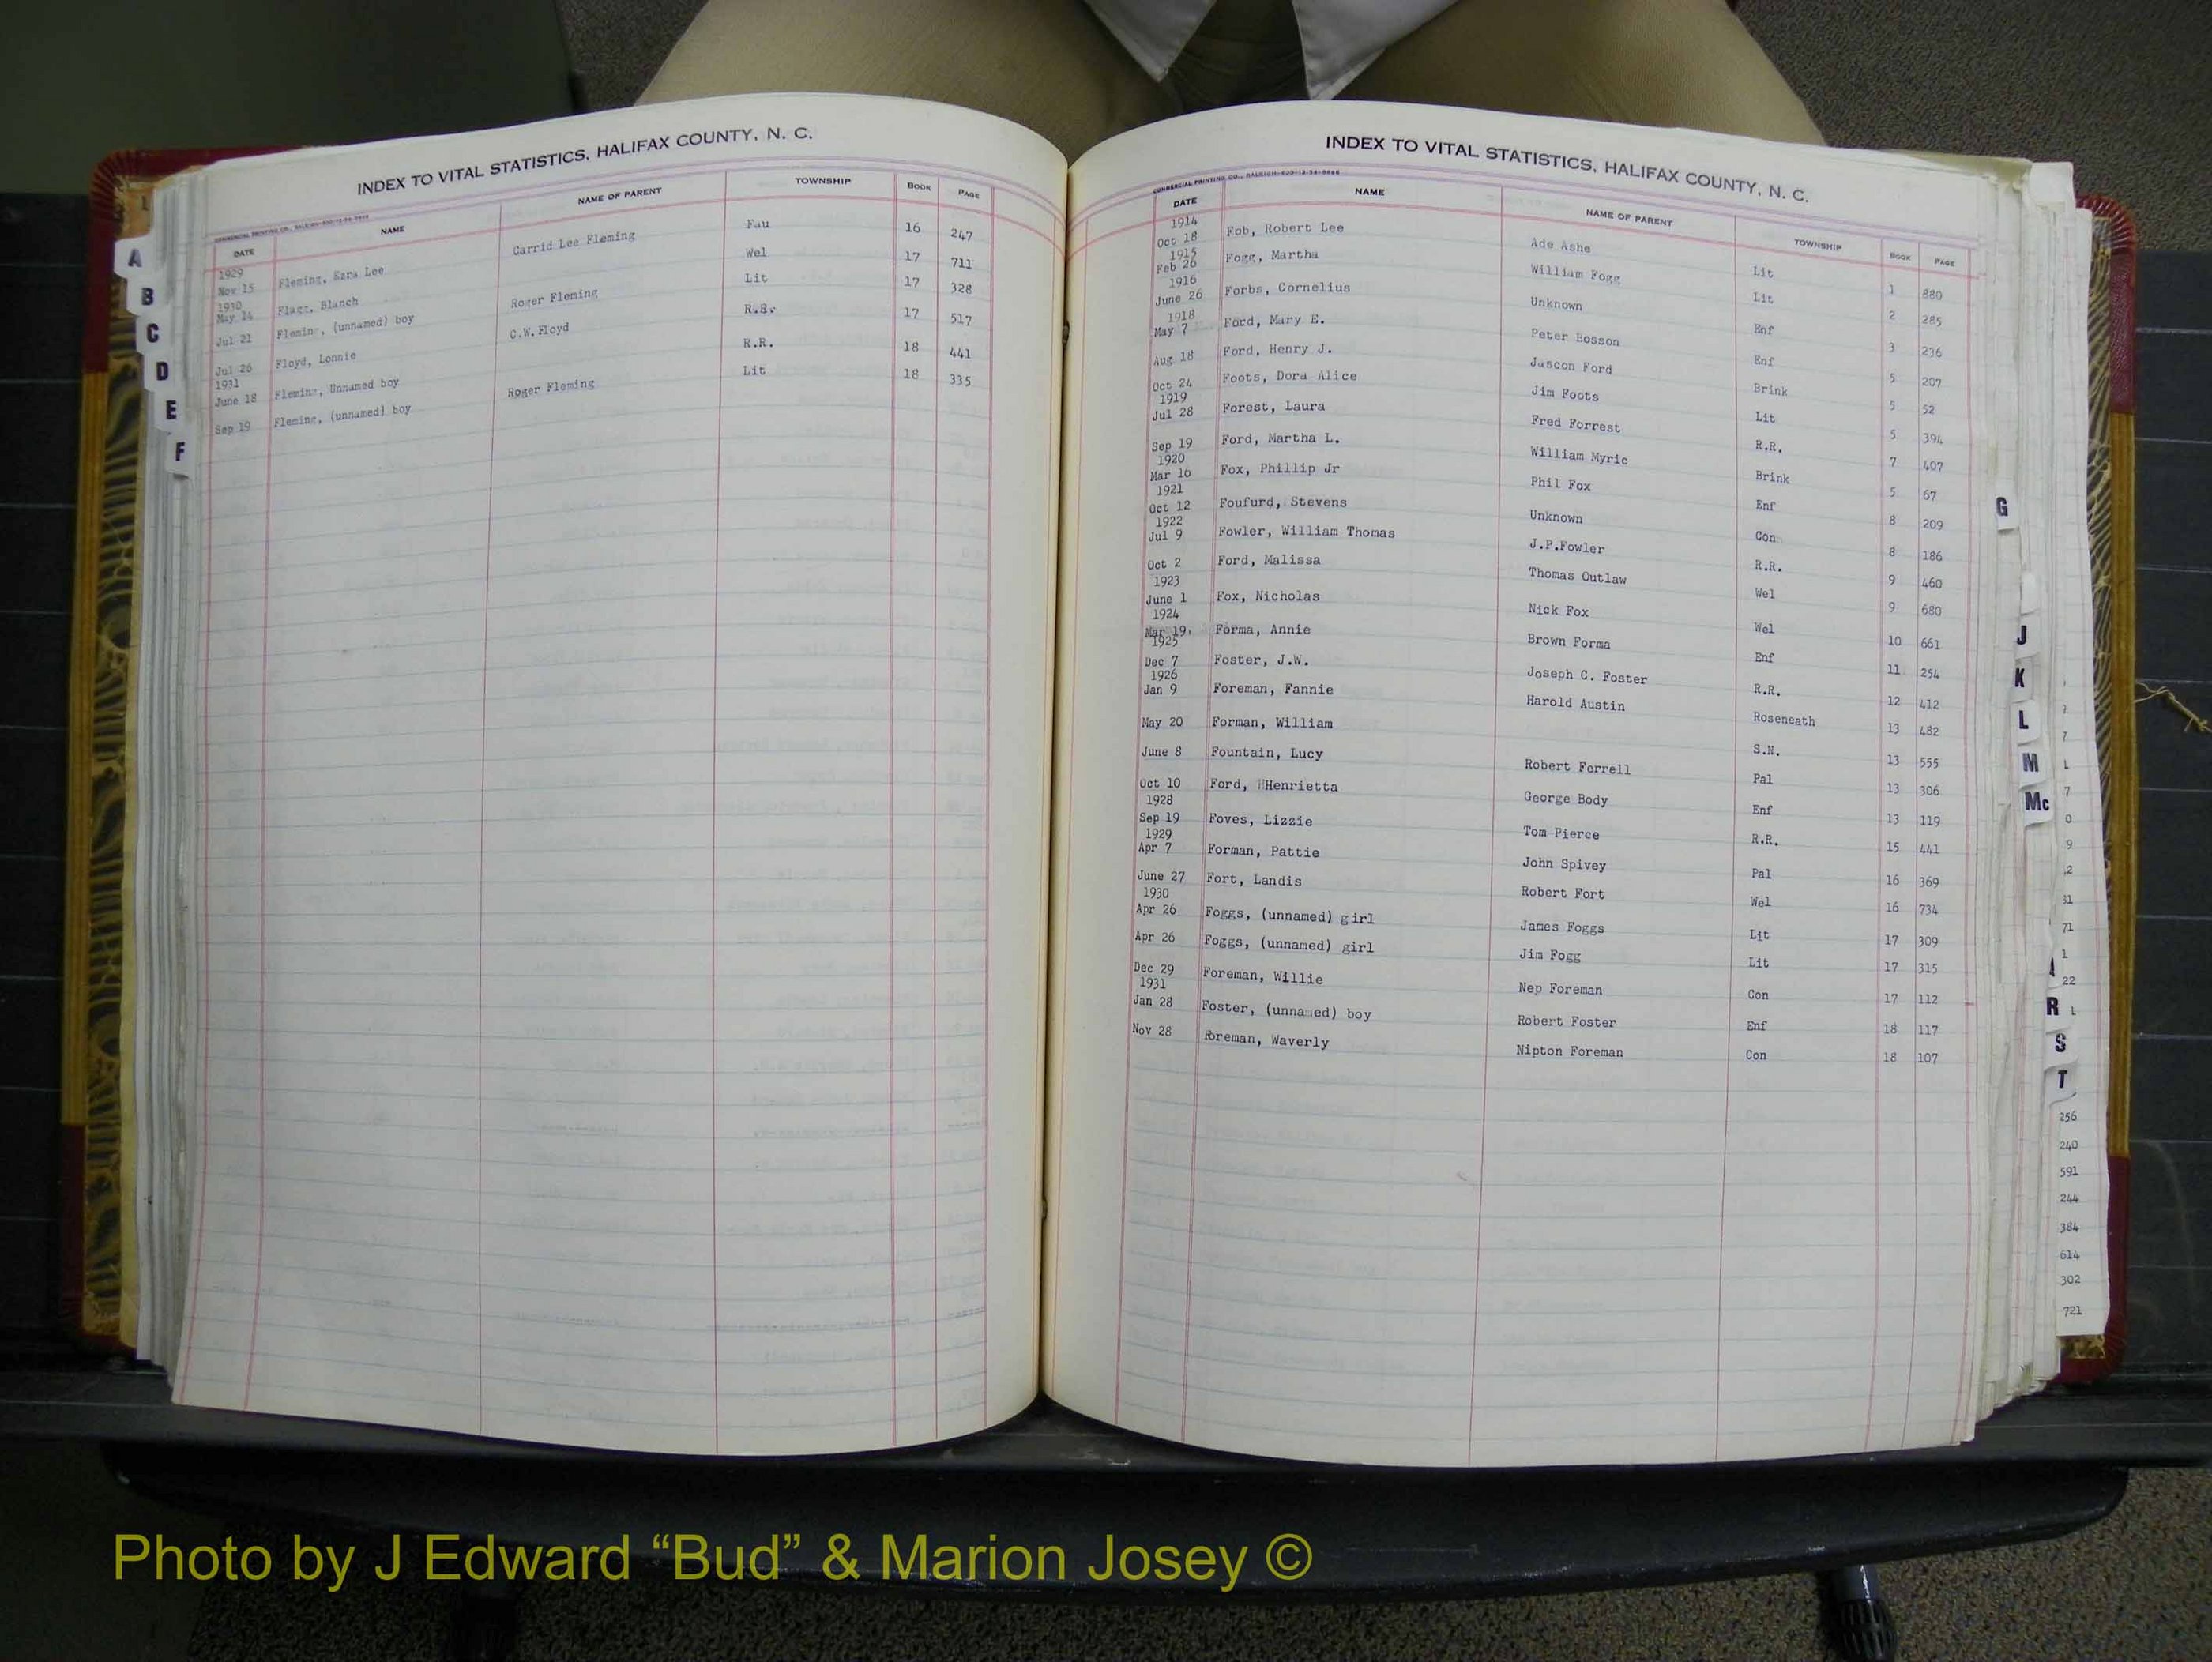 INDEX TO VITAL STATISTICS, HALIFAX COUNTY, N. C.
DATE NAME NAME OF PARENT TOWNSHIP BOOK PAGE
1929
Nov 15 Fleming, Ezra Lee Carrid Lee Fleming Fau 16 247
1930
May 14 Flagg, Blanch Wel 17 711
Jul 21 Fleming, (unnamed) boy Roger Fleming Lit 17 328
Jul 26 Floyd, Lonnie C.W.Floyd R.R. 17 517
1931
June 18 Fleming, Unnamed boy R.R. 18 441
Sep 19 Fleming, (unnamed) boy Roger Fleming Lit 18 335
A
B
C
D
E
F
INDEX TO VITAL STATISTICS, HALIFAX COUNTY, N. C.
DATE NAME NAME OF PARENT TOWNSHIP BOOK PAGE
1914
Oct 18 Fob, Robert Lee Ade Ashe Lit 1 880
1915
Feb 26 Fogg, Martha William Fogg Lit 2 285
1916
June 26 Forbs, Cornelius Unknown Enf 3 236
1918
May 7 Ford, Mary E. Peter Bosson Enf 5 207
Aug 18 Ford, Henry J. Jascon Ford Brink 5 52
Oct 24 Foots, Dora Alice Jim Foots Lit 5 394
1919
Jul 28 Forest, Laura Fred Forrest R.R. 7 407
Sep 19 Ford, Martha L. William Myric Brink 5 67
1920
Mar 16 Fox, Phillip Jr Phil Fox Enf 8 209
1921
Oct 12 Foufurd, Stevens Unknown Con 8 186
1922
Jul 9 Fowler, William Thomas J.P.Fowler R.R. 9 460
Oct 2 Ford, Malissa Thomas Outlaw Wel 9 680
1923
June 1 Fox, Nicholas Nick Fox Wel 10 661
1924
Mar 19 Forma, Annie Brown Forma Enf 11 254
1925
Dec 7 Foster, J.W. Joseph C. Foster R.R. 12 412
1926
Jan 9 Foreman, Fannie Harold Austin Roseneath 13 482
May 20 Forman, William S.N. 13 555
June 8 Fountain, Lucy Robert Ferrell Pal 13 306
Oct 10 Ford, HHenrietta George Body Enf 13 119
1928
Sep 19 Foves, Lizzie Tom Pierce R.R. 15 441
1929
Apr 7 Forman, Pattie John Spivey Pal 16 369
June 27 Fort, Landis Robert Fort Wel 16 734
1930
Apr 26 Foggs, (unnamed) girl James Foggs Lit 17 309
Apr 26 Foggs, (unnamed) girl Jim Fogg Lit 17 315
Dec 29 Foreman, Willie Nep Foreman Con 17 112
1931
Jan 28 Foster, (unnamed) boy Robert Foster Enf 18 117
Nov 28 Foreman, Waverly Nipton Foreman Con 18 107
G
J
K
L
M
Mc
R
S
T
256
240
591
244
384
614
302
721
Photo by J Edward “Bud” & Marion Josey ©